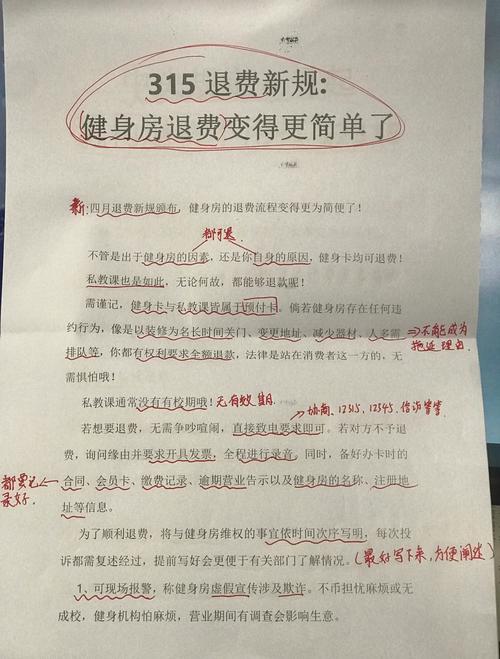 315 退费新规:
健身房退费变得更简单了
新:四月退费新规颁布，健身房的退费流程变得更为简便了！
都可退.
不管是出于健身房的因素，还是你自身的原因，健身卡均可退费！
私教课也是如此，无论何故，都能够退款呢！
需谨记，健身卡与私教课皆属于预付卡。倘若健身房存在任何违
约行为，像是以装修为名长时间关门、变更地址、减少器材、人多需
⇒不能成为
拖延理由.
排队等，你都有权利要求全额退款，法律是站在消费者这一方的，无
需惧怕哦！
私教课通常没有有校期哦！无有效期
→协商、12315、12345、信访等等
若想要退费，无需争吵喧闹，直接致电要求即可。若对方不予退
费，询问缘由并要求开具发票，全程进行录音。同时，备好办卡时的
都要记
录好.
合同、会员卡、缴费记录、逾期营业告示以及健身房的名称、注册地
址等信息。
为了顺利退费，将与健身房维权的事宜依时间次序写明，每次投
诉都需复述经过，提前写好会更便于有关部门了解情况。(最好写下来,方便阐述)
1、可现场报警，称健身房虚假宣传涉及欺诈。不币担忧麻烦或无
成校，健身机构怕麻烦，营业期间有调查会影响生意。